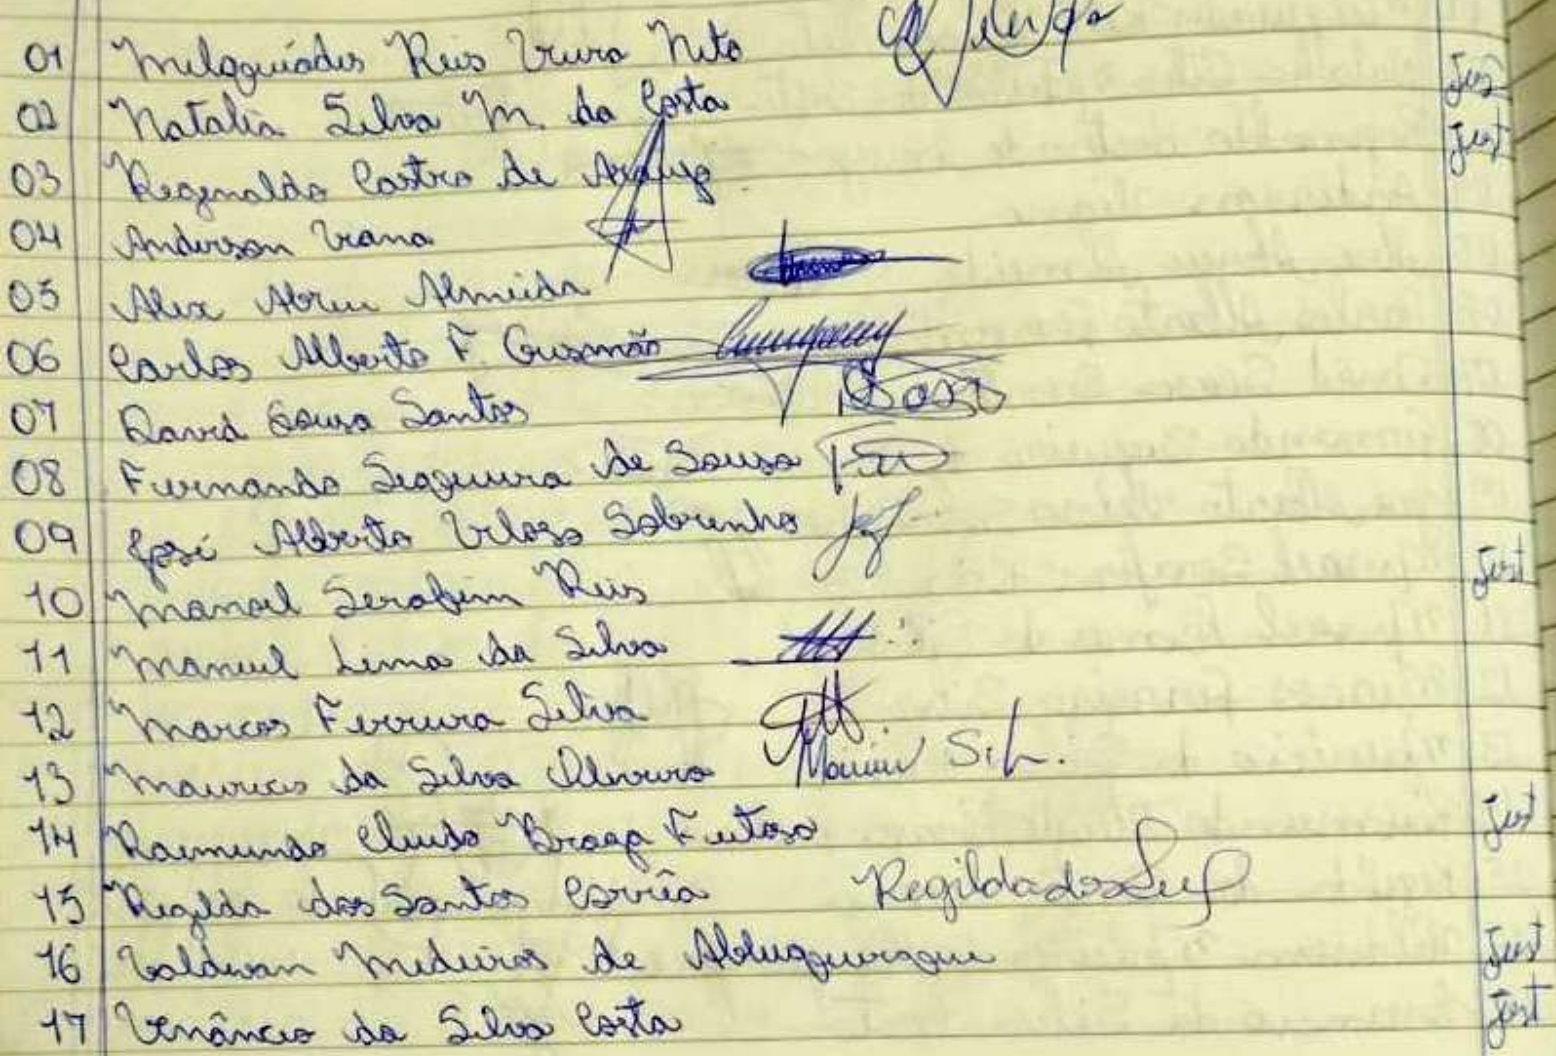 01 Melquiádes Reis Vieira Neto
02 Natalia Silva M. da Costa Just
03 Reginaldo Castro de Araujo Just
04 Anderson Viana
05 Alex Abreu Almeida
06 Carlos Alberto F. Gusmão
07 David Sousa Santos
08 Fernando Siqueira de Sousa
09 José Alberto Veloso Sobrinho
10 Manoel Serafim Reis Just
11 Manuel Lima da Silva
12 Marcos Ferreira Silva
13 Mauricio da Silva Oliveira
14 Raimundo Cleudo Braga Feitosa Just
15 Regilda dos Santos Corrêa Regilda dos
16 Valdivan Medeiros de Albuquerque Just
17 Venâncio da Silva Costa Just